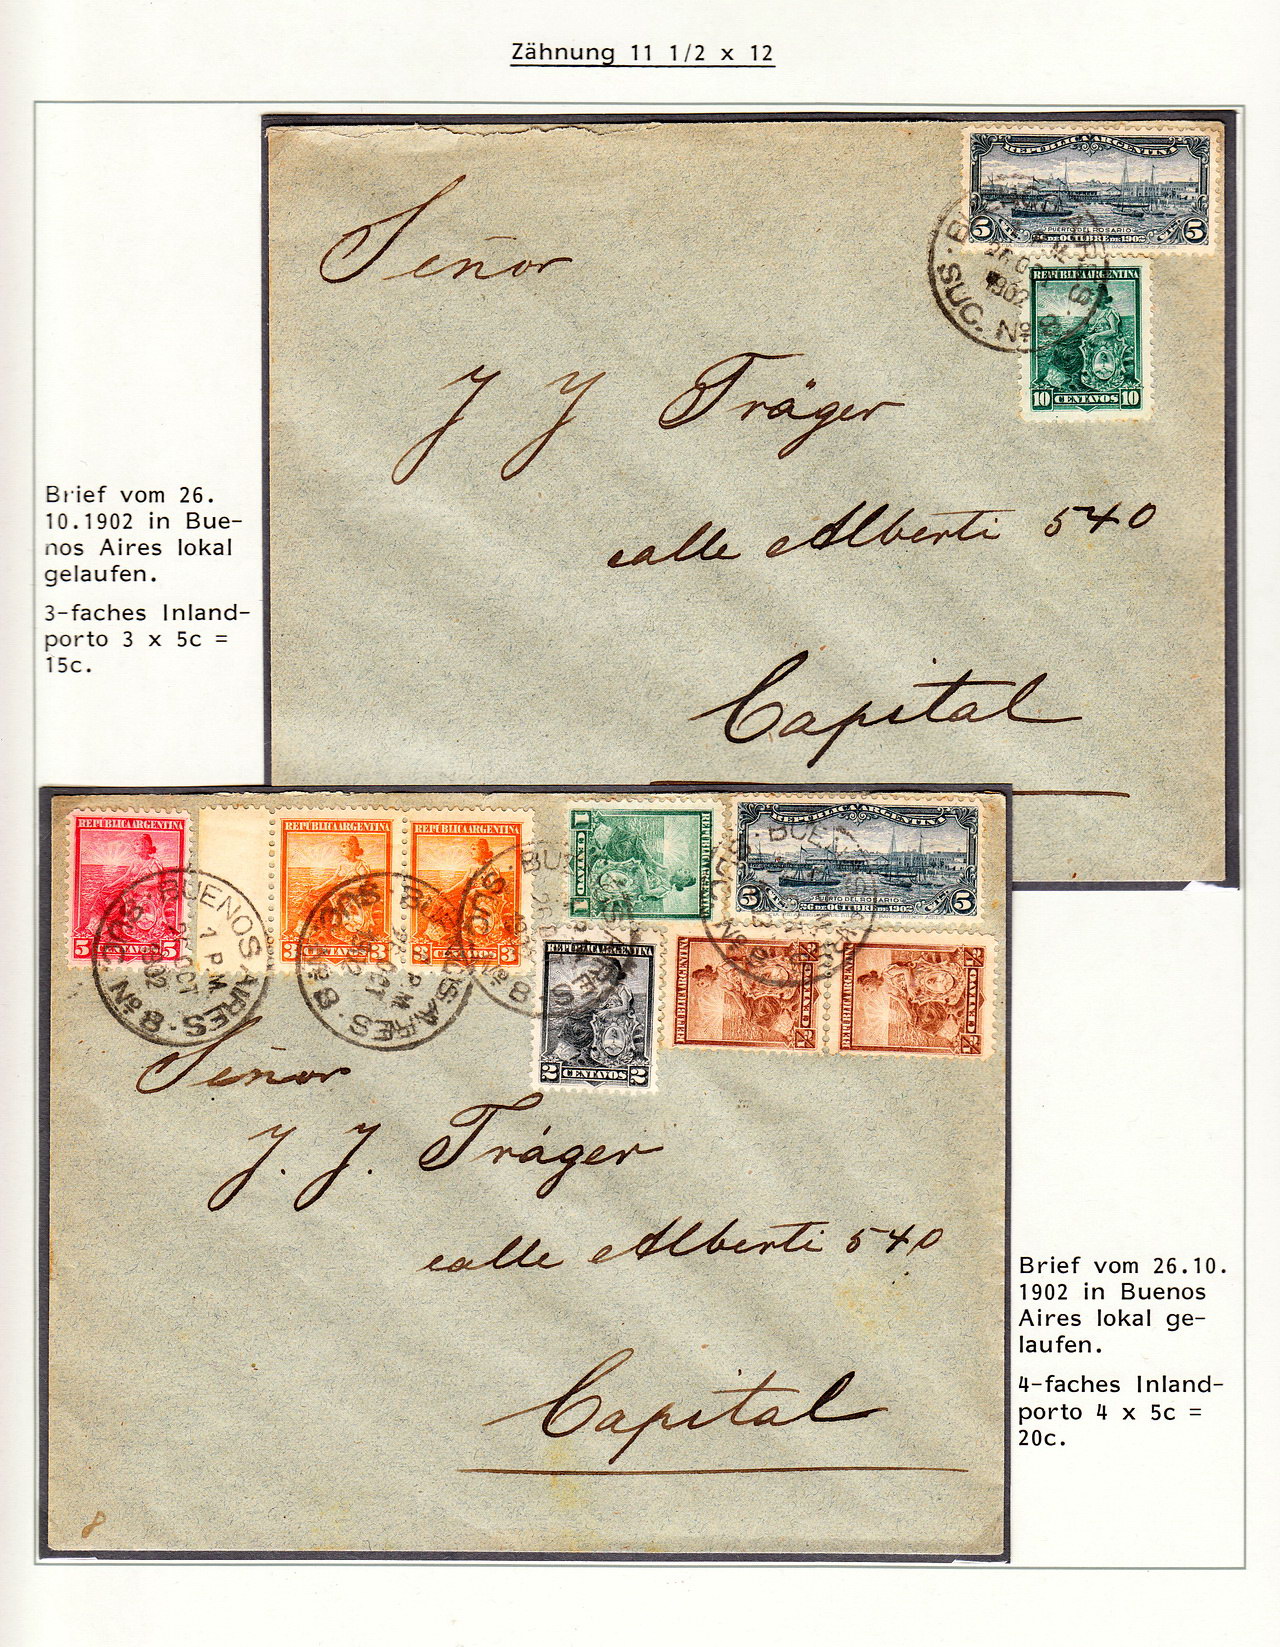 Zähnung 11 1/2 x 12
Brief vom 26.
10.1902 in Bue-
nos Aires lokal
gelaufen.
3-faches Inland-
porto 3 x 5c =
15c.
REPUBLICA ARGENTINA
5 PUERTO DEL ROSARIO 5
26 DE OCTUBRE DE 1902
SUC. Nº 8
1902
REPUBLICA ARGENTINA
10 CENTAVOS 10
Señor
J J Träger
calle Alberti 540
Capital
REPUBLICA ARGENTINA
5 CENTAVOS 5
REPUBLICA ARGENTINA
3 CENTAVOS 3
REPUBLICA ARGENTINA
3 CENTAVOS 3
1 CENTAVO 1
REPUBLICA ARGENTINA
REPUBLICA ARGENTINA
5 PUERTO DEL ROSARIO 5
26 DE OCTUBRE DE 1902
REPUBLICA ARGENTINA
2 CENTAVOS 2
REPUBLICA ARGENTINA
1/2 CENTAVO 1/2
REPUBLICA ARGENTINA
1/2 CENTAVO 1/2
BUENOS AIRES
1 P.M.
OCT
Nº 8
BUENOS AIRES
SUC. Nº 8
Señor
J. J. Träger
calle Alberti 540
Capital
8
Brief vom 26.10.
1902 in Buenos
Aires lokal ge-
laufen.
4-faches Inland-
porto 4 x 5c =
20c.